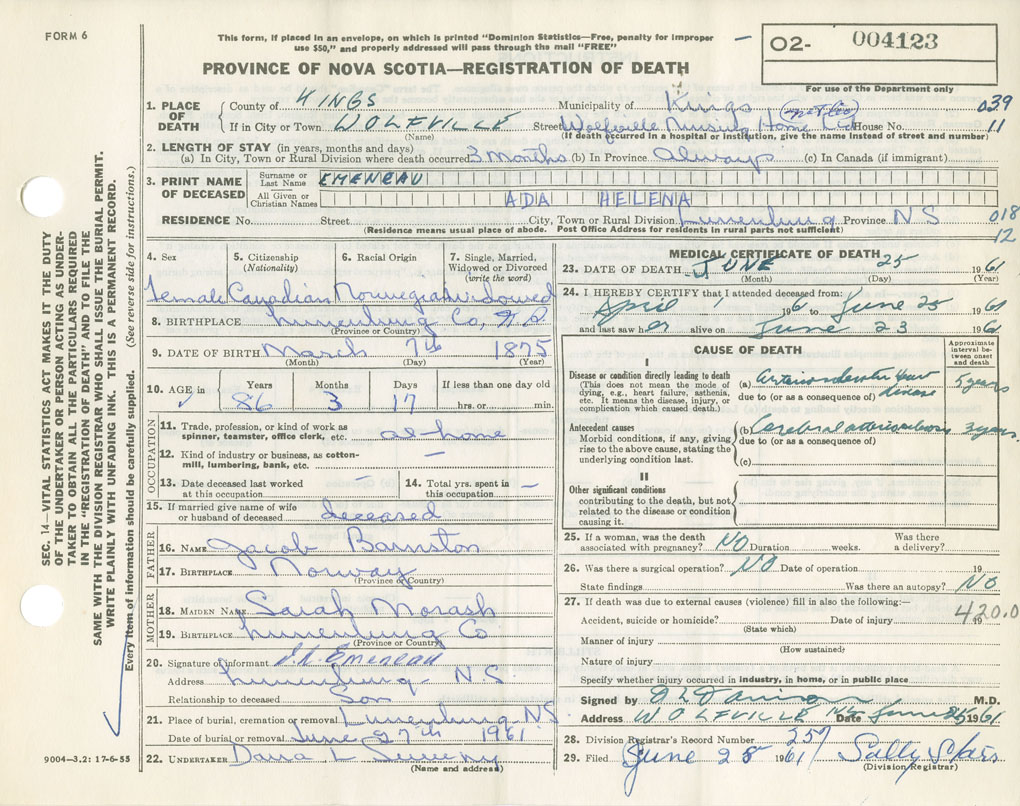 FORM 6
This form, if placed in an envelope, on which is printed "Dominion Statistics—Free, penalty for improper
use $50," and properly addressed will pass through the mail "FREE"
PROVINCE OF NOVA SCOTIA—REGISTRATION OF DEATH
O2- 004123
For use of the Department only
1. PLACE OF DEATH
County of KINGS Municipality of Kings 039
If in City or Town WOLFVILLE Street Wolfville Nursing Home Ltd House No. 11
(Name) (If death occurred in a hospital or institution, give the name instead of street and number)
2. LENGTH OF STAY (in years, months and days)
(a) In City, Town or Rural Division where death occurred 3 Months (b) In Province Always (c) In Canada (if immigrant)
3. PRINT NAME OF DECEASED
Surname or Last Name EMENEAU
All Given or Christian Names ADA HELENA
RESIDENCE No. Street City, Town or Rural Division Lunenburg Province N S 018
(Residence means usual place of abode. Post Office Address for residents in rural parts not sufficient) 12
4. Sex
female
5. Citizenship (Nationality)
Canadian
6. Racial Origin
Norwegian
7. Single, Married, Widowed or Divorced (write the word)
widowed
8. BIRTHPLACE Lunenburg Co, N.S.
(Province or Country)
9. DATE OF BIRTH March 7th 1875
(Month) (Day) (Year)
10. AGE in Years Months Days If less than one day old
86 3 17 hrs. or min.
OCCUPATION
11. Trade, profession, or kind of work as spinner, teamster, office clerk, etc. at home
12. Kind of industry or business, as cotton-mill, lumbering, bank, etc. —
13. Date deceased last worked at this occupation —
14. Total yrs. spent in this occupation —
15. If married give name of wife or husband of deceased deceased
FATHER
16. NAME Jacob Barnston
17. BIRTHPLACE Norway
(Province or Country)
MOTHER
18. MAIDEN NAME Sarah Morash
19. BIRTHPLACE Lunenburg Co
(Province or Country)
20. Signature of informant Emeneau
Address Lunenburg N S.
Relationship to deceased Son
21. Place of burial, cremation or removal Lunenburg NS
Date of burial or removal June 27th 1961
22. UNDERTAKER Dana L Sweeny
(Name and address)
MEDICAL CERTIFICATE OF DEATH
23. DATE OF DEATH JUNE 25 1961
(Month) (Day) (Year)
24. I HEREBY CERTIFY that I attended deceased from:
April 196 to June 25 1961
and last saw her alive on June 23 1961
CAUSE OF DEATH
Approximate interval between onset and death
I
Disease or condition directly leading to death
(This does not mean the mode of dying, e.g., heart failure, asthenia, etc. It means the disease, injury, or complication which caused death.)
(a) disease 5 years
due to (or as a consequence of)
Antecedent causes
Morbid conditions, if any, giving rise to the above cause, stating the underlying condition last.
(b) Cerebral 3 years
due to (or as a consequence of)
(c)
II
Other significant conditions
contributing to the death, but not related to the disease or condition causing it.
25. If a woman, was the death associated with pregnancy? NO Duration weeks. Was there a delivery?
26. Was there a surgical operation? NO Date of operation 19
State findings Was there an autopsy? NO
27. If death was due to external causes (violence) fill in also the following:—
420.0
Accident, suicide or homicide? Date of injury 19
(State which)
Manner of injury
(How sustained)
Nature of injury
Specify whether injury occurred in industry, in home, or in public place
Signed by M.D.
Address WOLFVILLE NS Date June 1961
28. Division Registrar's Record Number 257
29. Filed June 28 1961 Sally
(Division Registrar)
SEC. 14—VITAL STATISTICS ACT MAKES IT THE DUTY
OF THE UNDERTAKER OR PERSON ACTING AS UNDER-
TAKER TO OBTAIN ALL THE PARTICULARS REQUIRED
IN THE "REGISTRATION OF DEATH" AND TO FILE THE
SAME WITH THE DIVISION REGISTRAR WHO SHALL ISSUE THE BURIAL PERMIT.
WRITE PLAINLY WITH UNFADING INK. THIS IS A PERMANENT RECORD.
Every item of information should be carefully supplied. (See reverse side for instructions.)
9004—3.2: 17-6-55